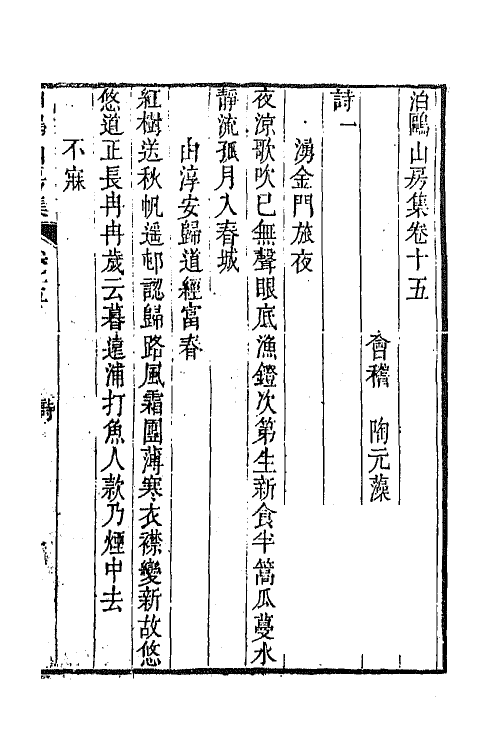 泊鷗山房集卷十五
會稽　陶元藻
詩一
湧金門旅夜
夜涼歌吹已無聲眼底漁鐙次第生新食半篙瓜蔓水
靜流孤月入春城
由淳安歸道經富春
紅樹送秋帆遥邨認歸路風霜團薄寒衣襟變新故悠
悠道正長冉冉歲云暮遠浦打魚人款乃煙中去
不寐